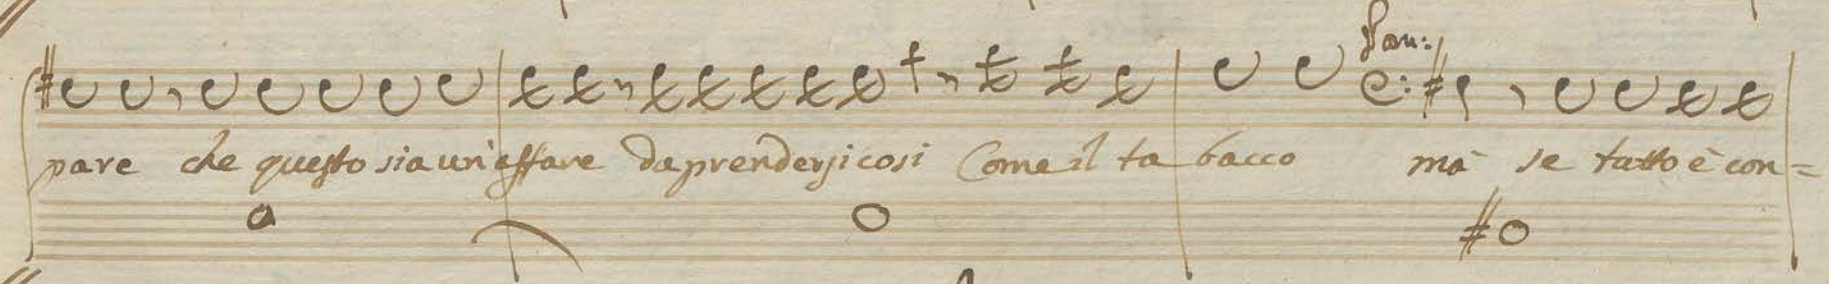 Pan:
pare che questo sia un'affare da prendersi cosi Come il ta bacco mà se tutto è con=